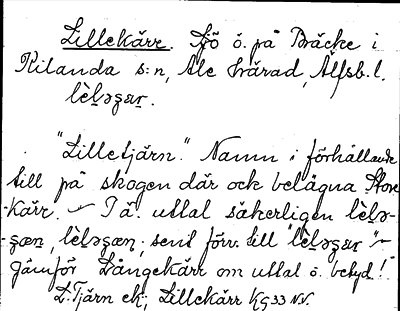 Lillekärr. Sjö ö. på Bräcke i
Kilanda s:n, Ale härad, Älfsb. l.
lèləʒar.
"Lilletjärn." Namn i förhållande
till på skogen där ock belägna Store-
kärr. – I ä. uttal säkerligen lèlə-
ʒæn, lèləʒæn; sent förv. till "lèləʒar" –
Jämför Långekärr om uttal o. betyd.!
L. Tjärn ek; Lillekärr Kg 33 NV.